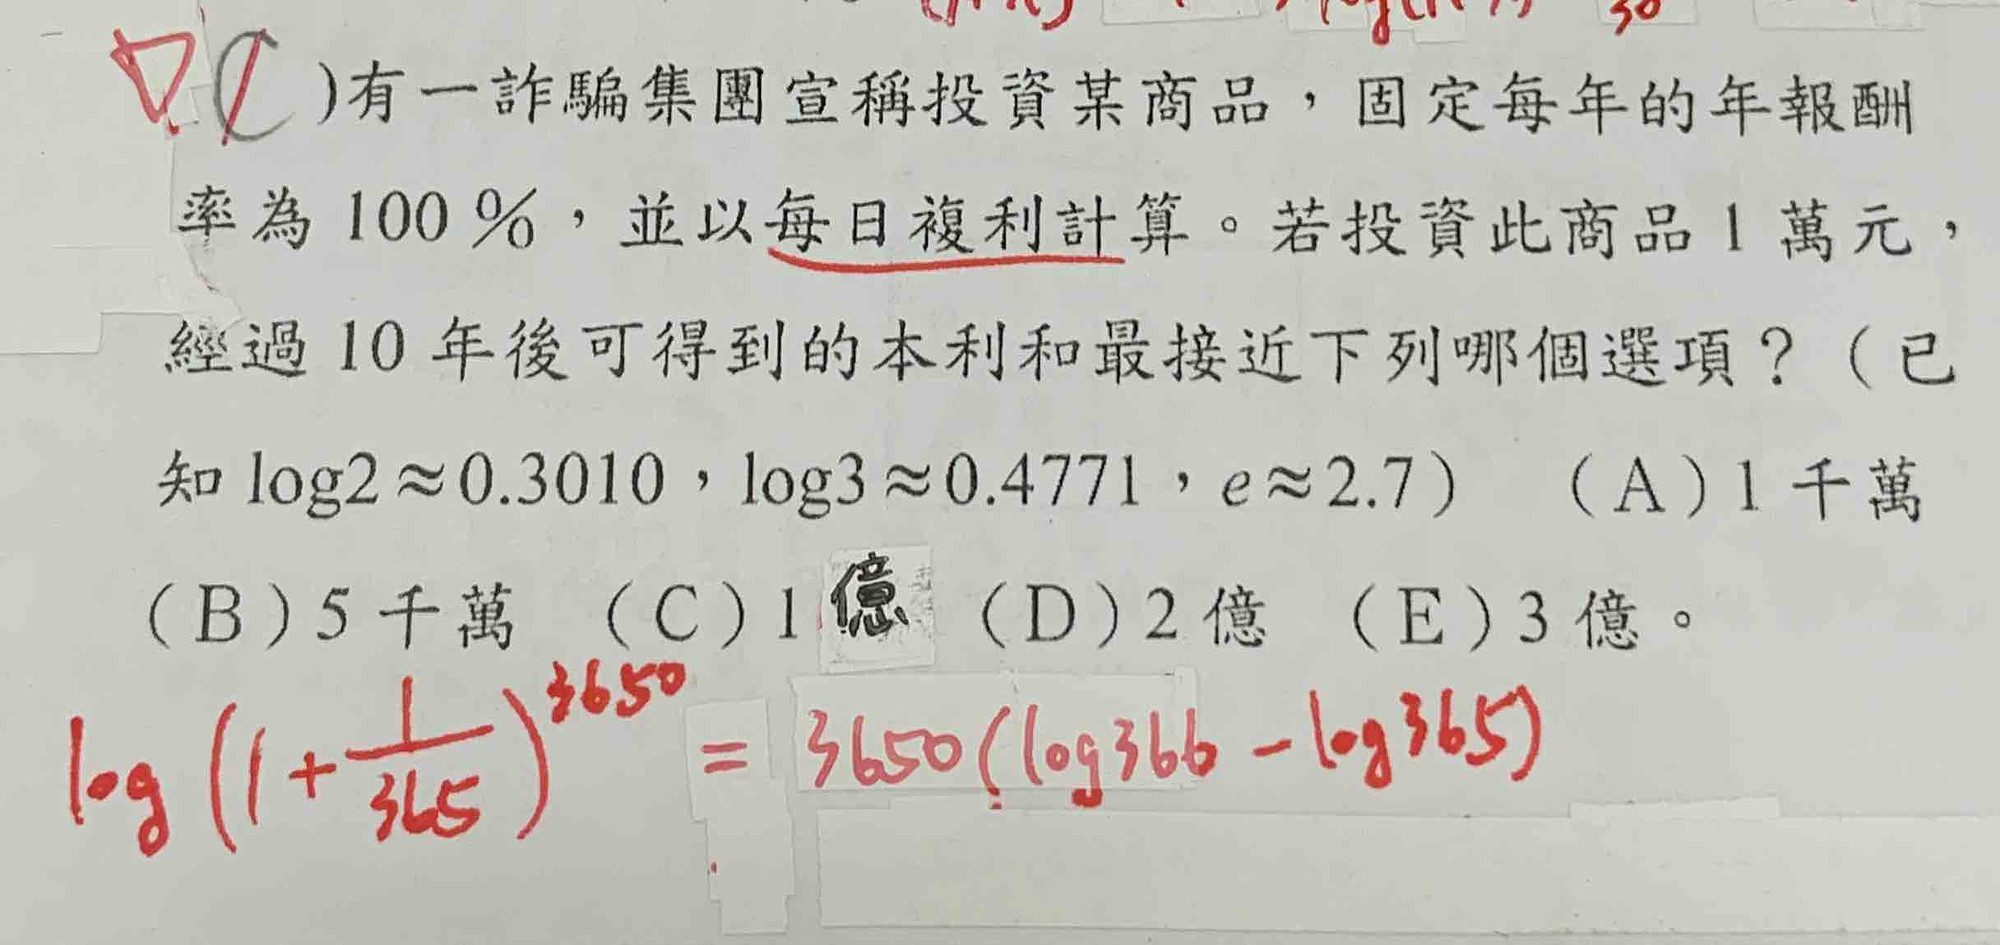 (C)有一詐騙集團宣稱投資某商品，固定每年的年報酬
率為 100 %，並以每日複利計算。若投資此商品 1 萬元，
經過 10 年後可得到的本利和最接近下列哪個選項？（已
知 log2≈0.3010，log3≈0.4771，e≈2.7） （A）1 千萬
（B）5 千萬 （C）1 億 （D）2 億 （E）3 億。
log (1+1/365)^3650 = 3650(log366 - log365)